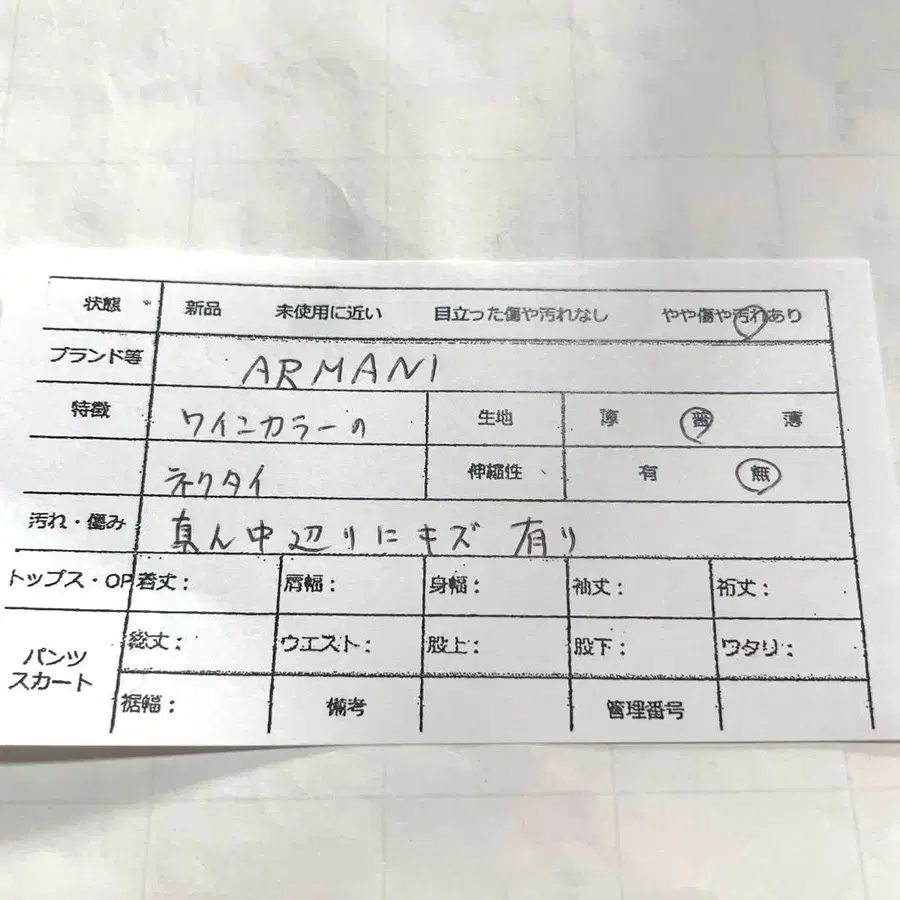 状態 新品 未使用に近い 目立った傷や汚れなし やや傷や汚れあり
ブランド等 ARMANI
特徴 ワインカラーの 生地 厚 普 薄
ネクタイ 伸縮性 有 無
汚れ・傷み 真ん中辺りにキズ 有り
トップス・OP 着丈: 肩幅: 身幅: 袖丈: 裄丈:
パンツ スカート
総丈: ウエスト: 股上: 股下: ワタリ:
裾幅: 備考 管理番号